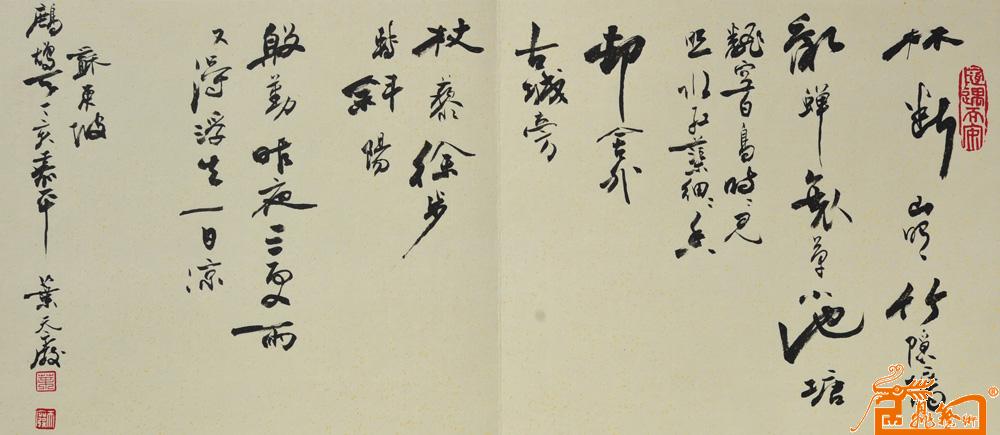 林断山明ミ竹隐墙
乱蝉衰草小池塘
翻空白鸟时ミ见
照水红蕖细ミ香
邨舍外
古城旁
杖藜徐步
转斜阳
殷勤昨夜三更雨
又得浮生一日凉
苏东坡
鹧鸪天 辛亥 叶天廢